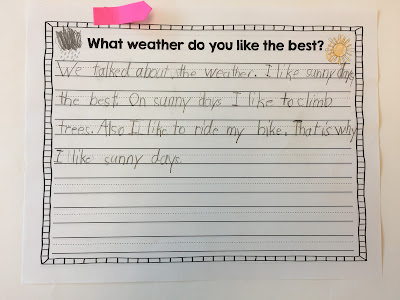 What weather do you like the best?
We talked about the weather. I like sunny days
the best. On sunny days I like to climb
trees. Also I like to ride my bike. That is why
I like sunny days.